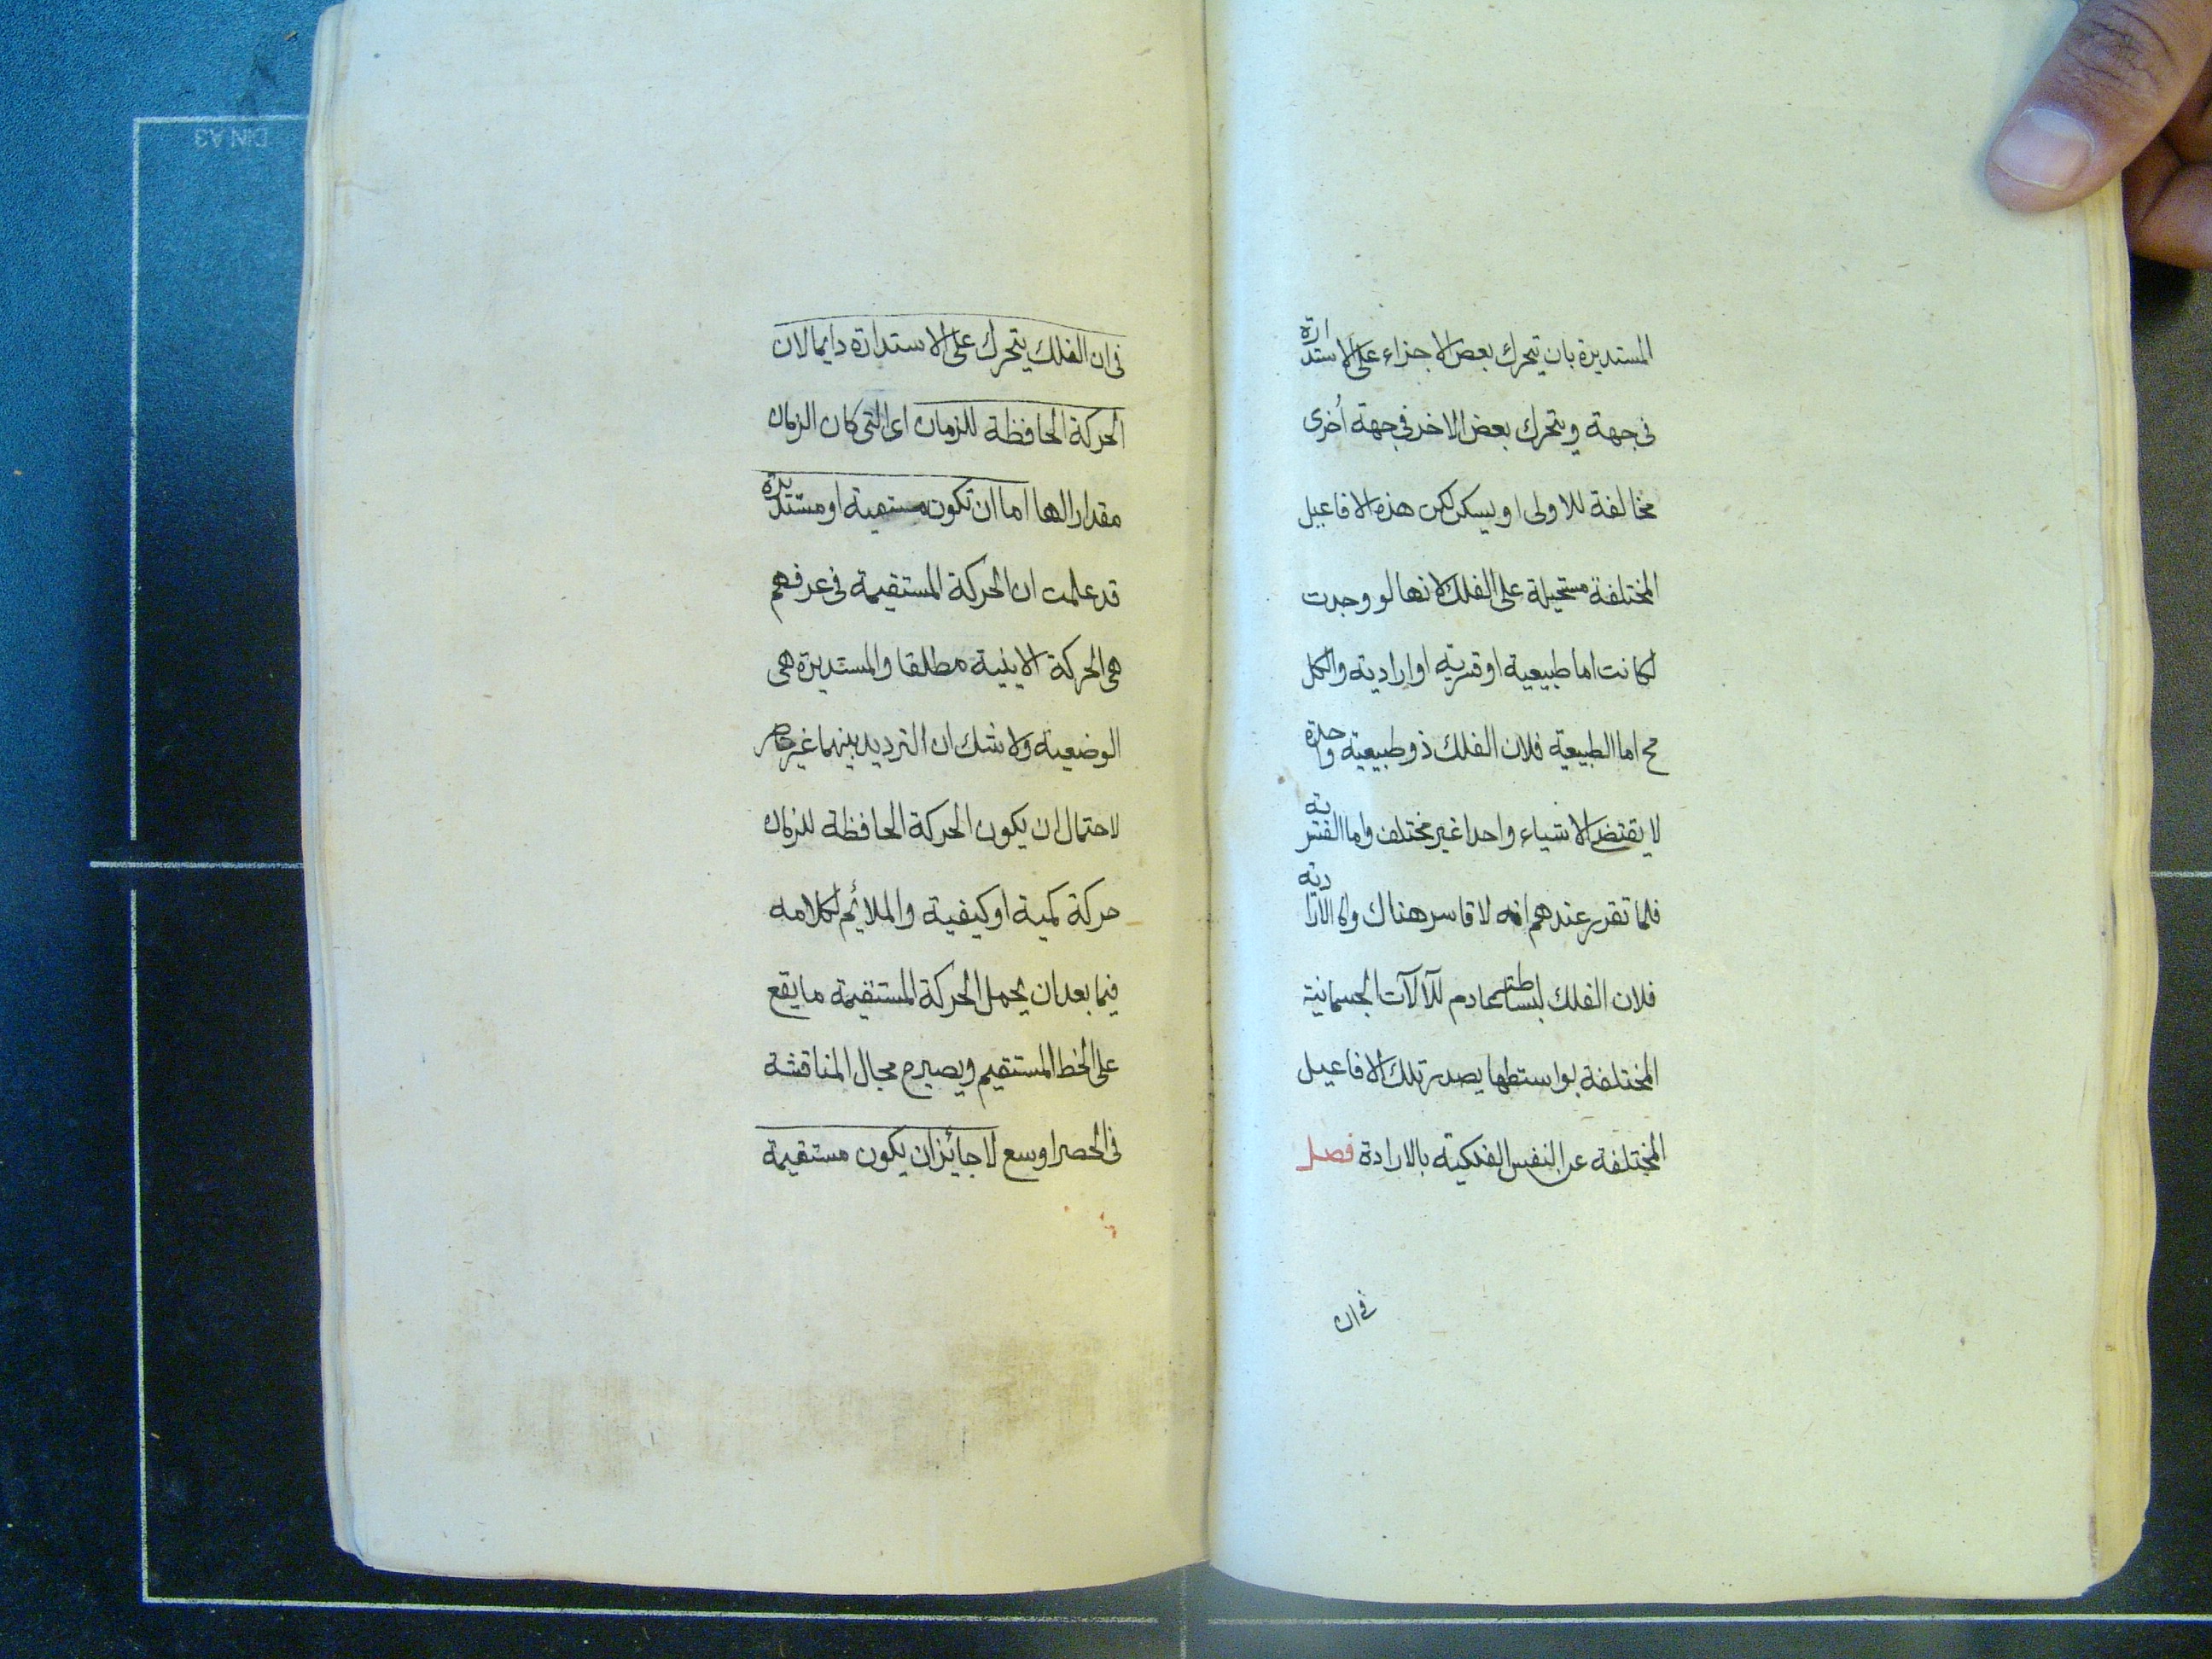 المستديرة بان تيحرك بعض الاجزاء على الاستدارة
فى جهة ويتحرك بعض الاخر فى جهة أخرى
مخالفة للاولى او يسكن لكن هذه الافاعيل
المختلفة مستحيلة على الفلك لانها لو وجدت
لكانت اما طبيعية او قسرية او ارادية والكل
مح اما الطبيعية فلان الفلك ذو طبيعية واحدة
لا يقتضى الاشياء واحدا غير مختلف واما القسرية
فلما تقرر عندهم انه لا قاسر هناك واما الارادية
فلان الفلك لبساطته عادم للآلآت الجسمانية
المختلفة بواسطها يصدر تلك الافاعيل
المختلفة عن النفس الفلكية بالارادة فصل
فى ان
فى ان الفلك يتحرك على الاستدارة دايما لان
الحركة الحافظة للزمان اى التى كان الزمان
مقدارا لها اما ان تكون مستقيمة او مستديرة
قد علمت ان الحركة المستقيمة فى عرفهم
هى الحركة الاينية مطلقا والمستديرة هى
الوضعية ولا شك ان الترديد بينهما غير حاصر
لاحتمال ان يكون الحركة الحافظة للزمان
حركة كمية او كيفية والملائم لكلامه
فيما بعد ان يحمل الحركة المستقيمة ما يقع
على الخط المستقيم ويصير ح مجال المناقشة
فى الحصر اوسع لا جائز ان يكون مستقيمة
DIN A3